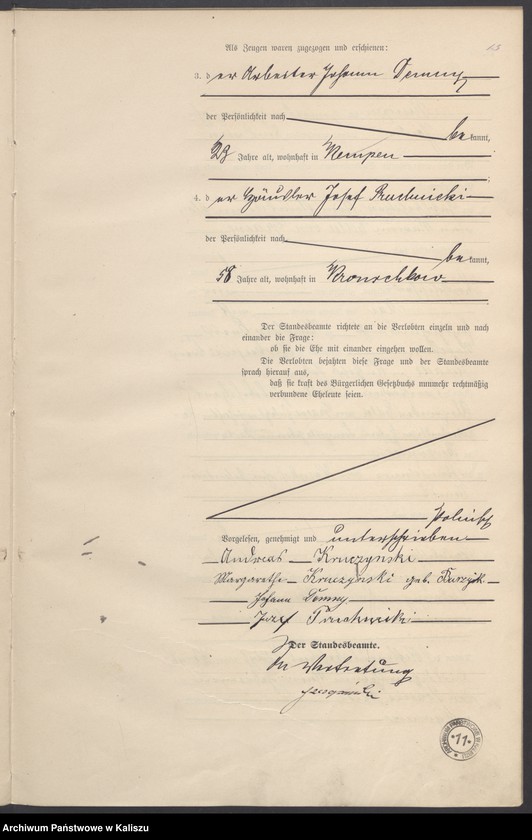 Als Zeugen waren zugezogen und erschienen:
3. der Arbeiter Johann Demny
der Persönlichkeit nach
bekannt,
23 Jahre alt, wohnhaft in Kempen
4. der Häusler Josef Rudnicki
der Persönlichkeit nach
bekannt,
58 Jahre alt, wohnhaft in Kronschkow
Der Standesbeamte richtete an die Verlobten einzeln und nach
einander die Frage:
ob sie die Ehe mit einander eingehen wollen.
Die Verlobten bejahten diese Frage und der Standesbeamte
sprach hierauf aus,
daß sie kraft des Bürgerlichen Gesetzbuchs nunmehr rechtmäßig
verbundene Eheleute seien.
Vorgelesen, genehmigt und unterschrieben
Andreas Kruczynski
Margarethe Kruczynski geb.
Johann Demny
Jozef
Der Standesbeamte.
In Vertretung
ARCHIWUM PAŃSTWOWE W KALISZU
*11*
Archiwum Państwowe w Kaliszu